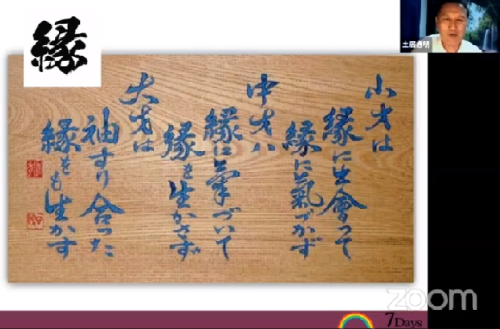 縁
小才は
縁に出會って
縁に氣づかず
中才ハ
縁に氣づいて
縁を生かさず
大才は
袖すり合った
縁をも生かす
zoom
7 Days